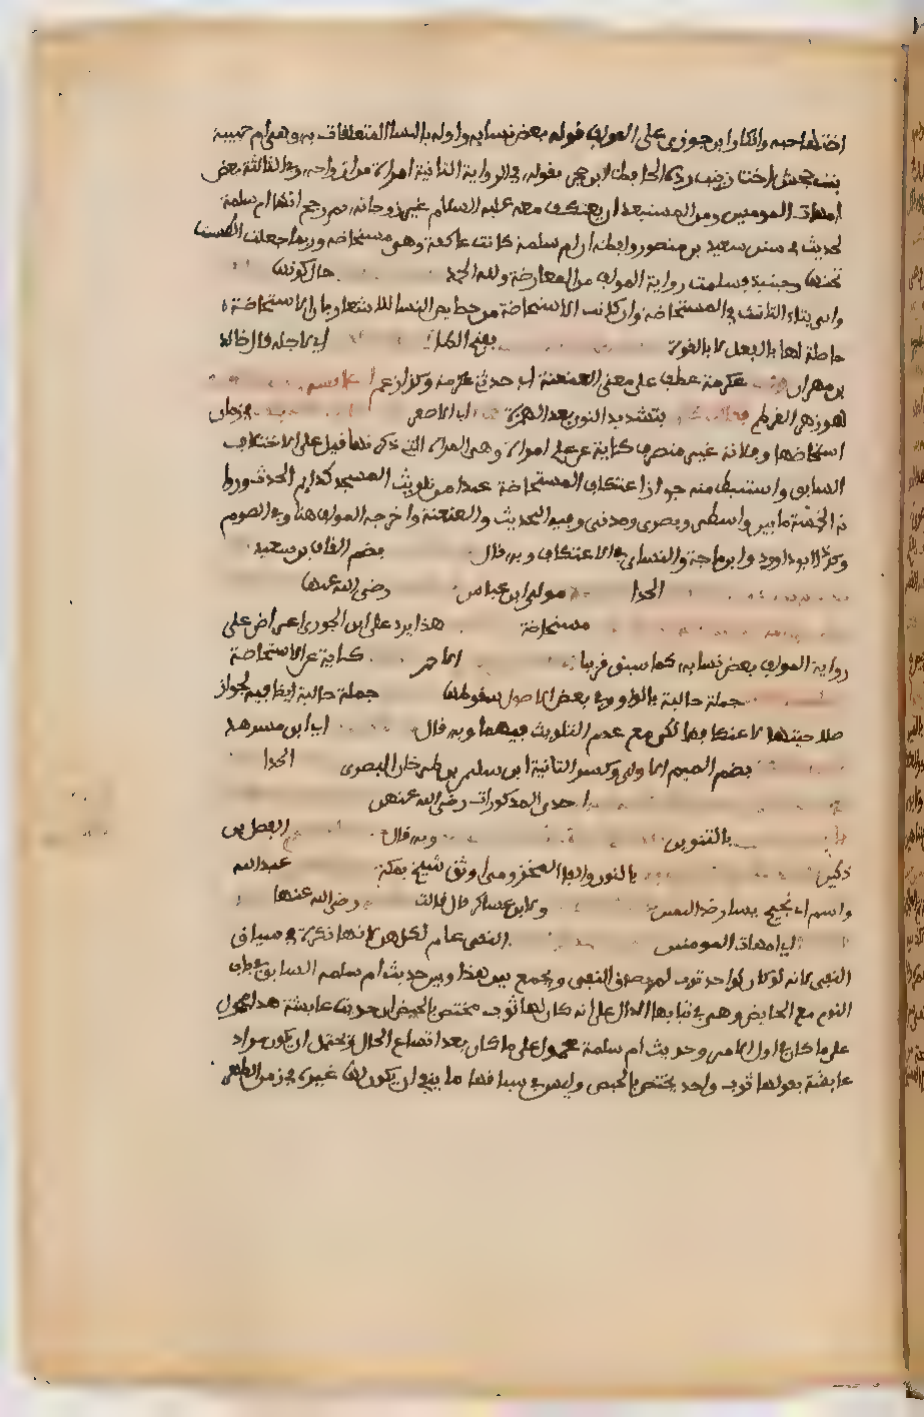 اختها حبيبة وانكار ابن جوزى على المولف قوله بعض نسايه واوله بالنسا المتعلقات به وهى ام حبيبة
بنت جحش اخت زينب رده الحافظ ابن حجر بقوله فى الرواية الثانية امراة من ازواجه وفى الثالثة بعض
امهات المومنين ومن المستبعد ان يعتكف معه عليه السلام غير زوجاته ثم رجح انها ام سلمة
لحديث فى سنن سعيد بن منصور ولفظه ان ام سلمة كانت عاكفة وهى مستحاضة وربما جعلت الطست
تحتها وحينيذ سلمت رواية المولف من المعارضة ولله الحمد حال كونها
واتى بتاء التانيث فى المستحاضة وان كانت الاستحاضة من خصايص النسا للاشعار بان الاستحاضة
حاصلة لها بالفعل لا بالقوة بفتح الكاف اى لاجله قال خالد
بن مهران عكرمة عطف على معنى العنعنة اى حدثنى عكرمة وكذا زعم عايشة
هو زهى القرطم بتشديد النون بعد الهمزة اى الاصفر فى زمان
استحاضتها وفلانة غير منصرف كناية عن علم امراة وهى المراة التى ذكرتها قبل على الاختلاف
السابق واستنبط منه جواز اعتكاف المستحاضة عند امن تلويث المسجد كدايم الحدث وروا
ته الخمسة ما بين واسطى وبصرى ومدنى وفيه التحديث والعنعنة واخرجه المولف هنا وفى الصوم
وكذا ابو داوود وابن ماجة والنساى فى الاعتكاف وبه قال بضم القاف بن سعيد
الحذا مولى ابن عباس رضى الله عنها
مستحاضة هذا يرد على ابن الجوزى اعتراضه على
رواية المولف بعض نسايه كما سبق قريبا الاحمر كناية عن الاستحاضة
جملة حالية بالواو وفى بعض الاصول سقوطها جملة حالية ايضا فيه لجواز
صلاحيتها لاعتكافها لكن مع عدم التلويث فيهما وبه قال اى ابن مسرهد
بضم الميم الاولى وكسر الثانية ابن سليمن بن طرخان البصرى الحذا
احدى المذكورات رضى الله عنهن
بالتنوين وبه قال الفضل بن
دكين بالنون والفا المخزومى اوثق شيخ بمكة عبد الله
واسم ابى نجيح يسار ضد اليمين ولابن عساكر قال قالت رضى الله عنها
اى امهات المومنين النفى عام لكلهن لانها نكرة فى سياق
النفى لانه لو كان لواحد ثوب لم يصدق النفى ويجمع بين هذا وبين حديث ام سلمة السابق فى باب
النوم مع الحايض وهى فى ثيابها الدال على انه كان لها ثوب مختص بالحيض ان حديث عايشة هذا محمول
على ما كان فى اول الامر وحديث ام سلمة محمول على ما كان بعد اتساع الحال ويحتمل ان يكون مراد
عايشة بقولها ثوب واحد يختص بالحيض وليس فى سياقها ما ينفى ان يكون لها غيره فى زمن الطهر